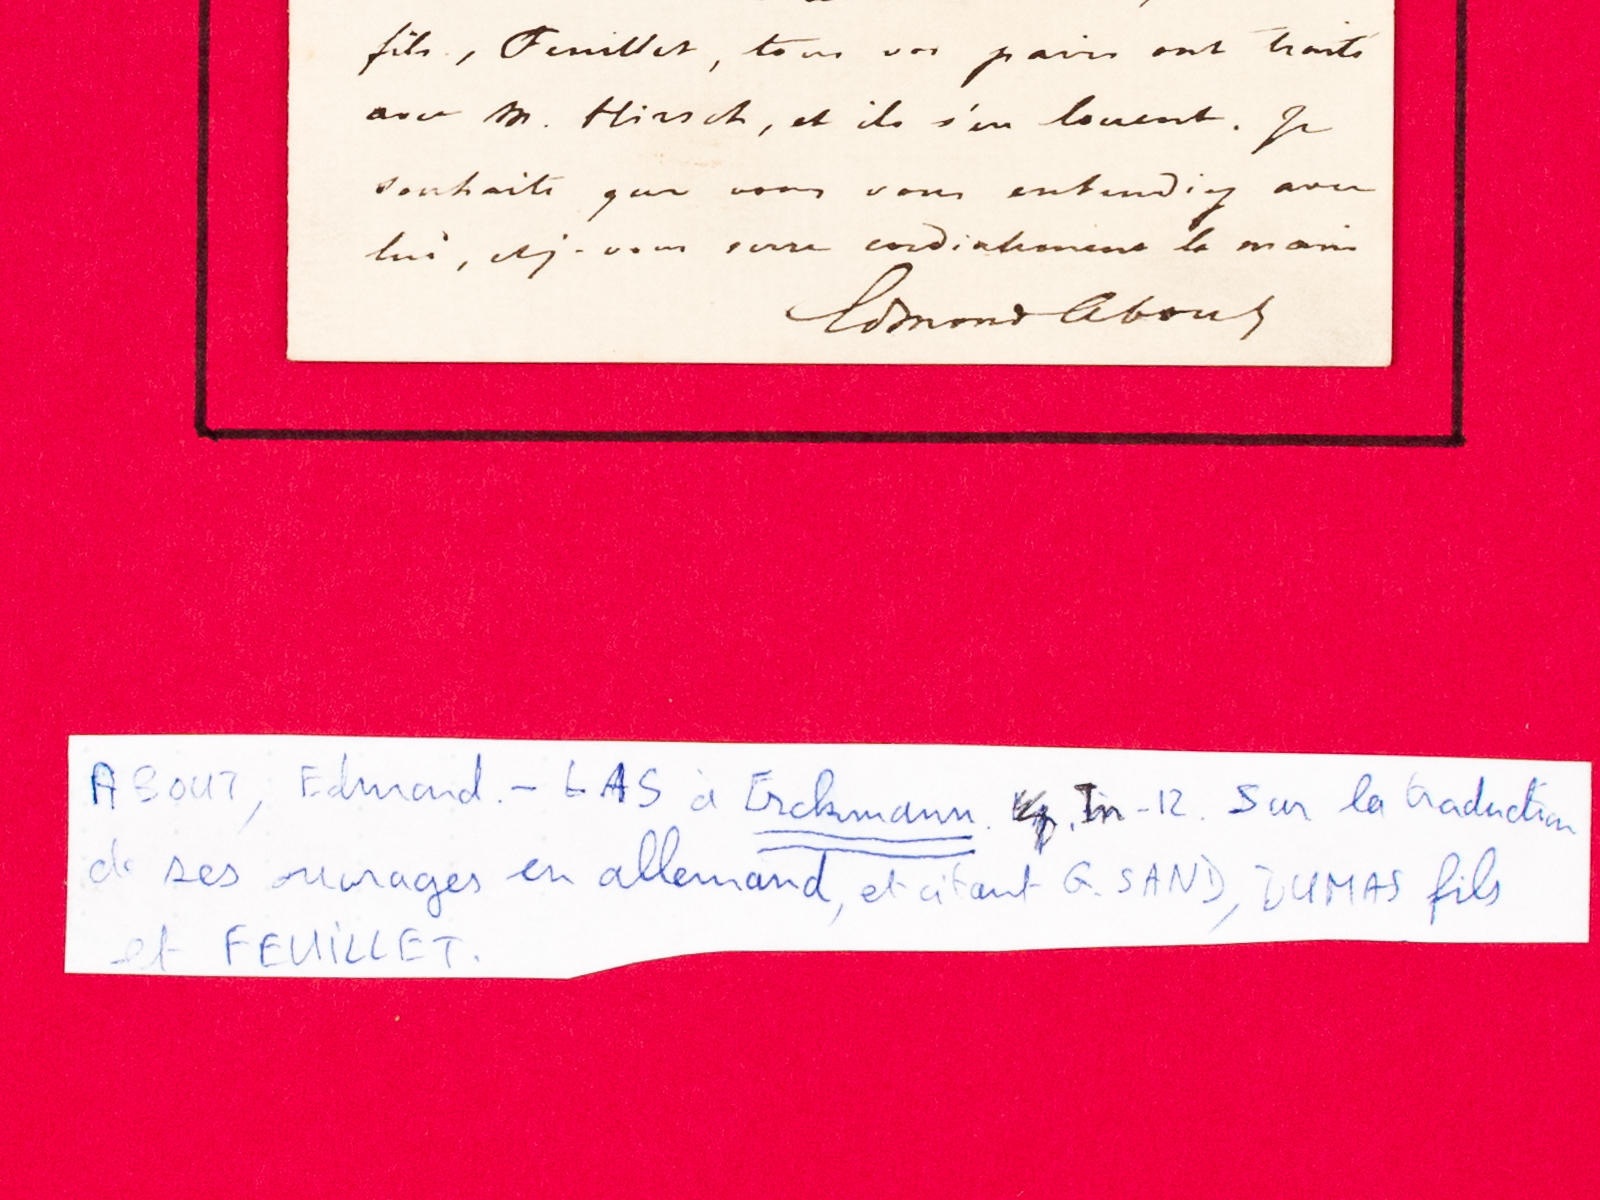 fils, Feuillet, tous vos pairs ont traité
avec M. Hirsch, et ils s'en louent. Je
souhaite que vous vous entendiez avec
lui, et je vous serre cordialement la main
Edmond About
ABOUT, Edmond. - LAS à Erckmann. In-12. Sur la traduction
de ses ouvrages en allemand, et citant G. SAND, DUMAS fils
et FEUILLET.